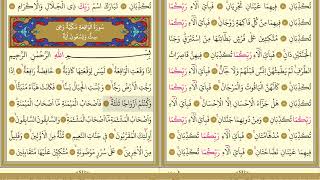 تُكَذِّبَانِ فَبِأَيِّ آلَاءِ رَبِّكُمَا
تُكَذِّبَانِ فِيهِمَا مِنْ كُلِّ فَاكِهَةٍ زَوْجَانِ فَبِأَيِّ آلَاءِ
رَبِّكُمَا تُكَذِّبَانِ مُتَّكِئِينَ عَلَى فُرُشٍ بَطَائِنُهَا مِنْ إِسْتَبْرَقٍ وَجَنَا
الْجَنَّتَيْنِ دَانٍ فَبِأَيِّ آلَاءِ رَبِّكُمَا تُكَذِّبَانِ فِيهِنَّ قَاصِرَاتُ
الطَّرْفِ لَمْ يَطْمِثْهُنَّ إِنْسٌ قَبْلَهُمْ وَلَا جَانٌّ فَبِأَيِّ آلَاءِ رَبِّكُمَا
تُكَذِّبَانِ كَأَنَّهُنَّ الْيَاقُوتُ وَالْمَرْجَانُ فَبِأَيِّ آلَاءِ رَبِّكُمَا
تُكَذِّبَانِ هَلْ جَزَاءُ الْإِحْسَانِ إِلَّا الْإِحْسَانُ فَبِأَيِّ آلَاءِ
رَبِّكُمَا تُكَذِّبَانِ وَمِنْ دُونِهِمَا جَنَّتَانِ فَبِأَيِّ آلَاءِ رَبِّكُمَا
تُكَذِّبَانِ مُدْهَامَّتَانِ فَبِأَيِّ آلَاءِ رَبِّكُمَا تُكَذِّبَانِ
فِيهِمَا عَيْنَانِ نَضَّاخَتَانِ فَبِأَيِّ آلَاءِ رَبِّكُمَا تُكَذِّبَانِ
تُكَذِّبَانِ تَبَارَكَ اسْمُ رَبِّكَ ذِي الْجَلَالِ وَالْإِكْرَامِ
سُورَةُ الْوَاقِعَةِ مَكِّيَّةٌ وَهِيَ
سِتٌّ وَتِسْعُونَ آيَةً
بِسْمِ اللهِ الرَّحْمٰنِ الرَّحِيمِ
إِذَا وَقَعَتِ الْوَاقِعَةُ لَيْسَ لِوَقْعَتِهَا كَاذِبَةٌ خَافِضَةٌ رَافِعَةٌ إِذَا
رُجَّتِ الْأَرْضُ رَجًّا وَبُسَّتِ الْجِبَالُ بَسًّا فَكَانَتْ هَبَاءً مُنْبَثًّا
وَكُنْتُمْ أَزْوَاجًا ثَلَاثَةً فَأَصْحَابُ الْمَيْمَنَةِ مَا أَصْحَابُ الْمَيْمَنَةِ
وَأَصْحَابُ الْمَشْئَمَةِ مَا أَصْحَابُ الْمَشْئَمَةِ وَالسَّابِقُونَ السَّابِقُونَ
أُولٰئِكَ الْمُقَرَّبُونَ فِي جَنَّاتِ النَّعِيمِ ثُلَّةٌ مِنَ الْأَوَّلِينَ وَقَلِيلٌ
مِنَ الْآخِرِينَ عَلَى سُرُرٍ مَوْضُونَةٍ مُتَّكِئِينَ عَلَيْهَا مُتَقَابِلِينَ